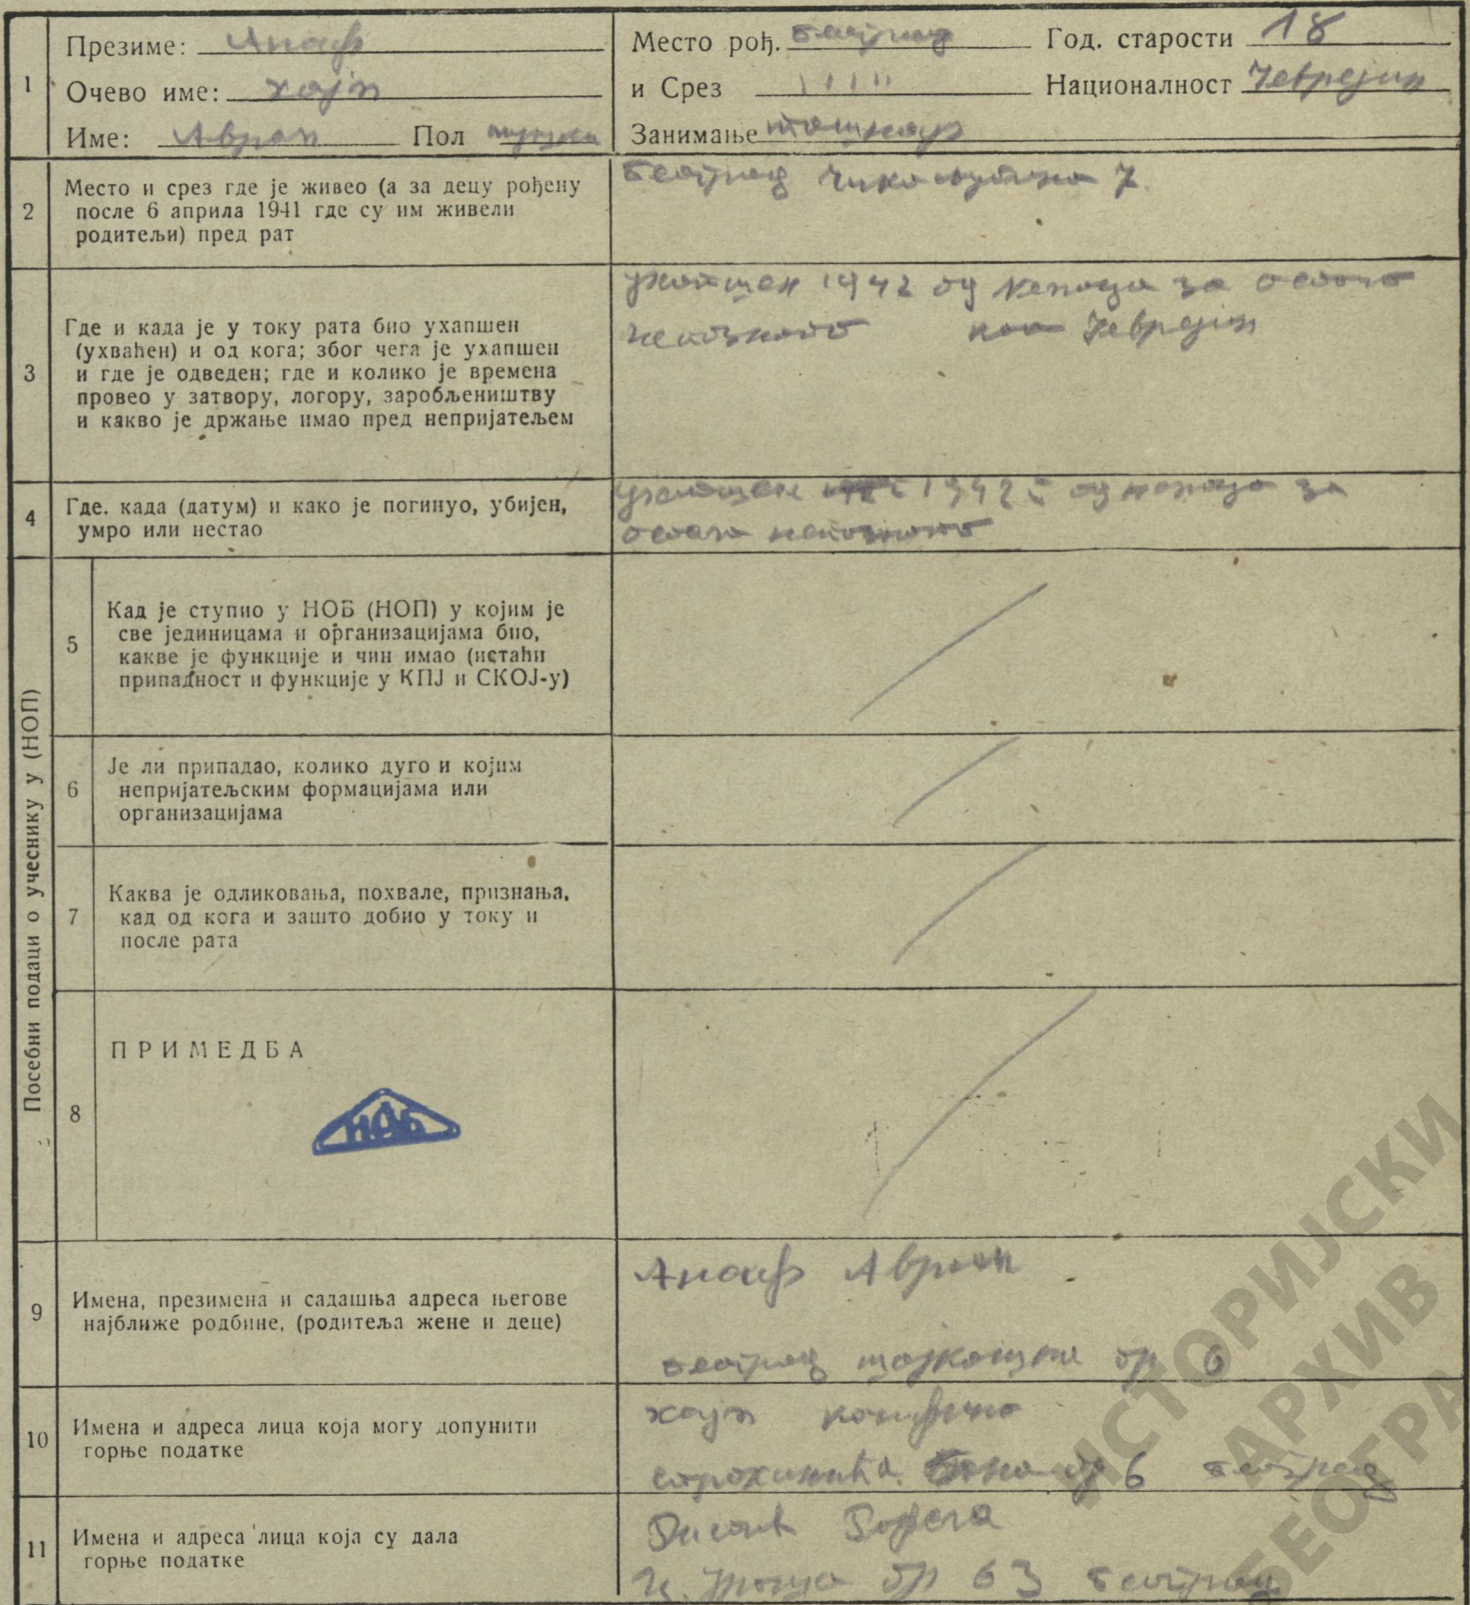 1
Презиме: Анаф
Место рођ. Београд
Год. старости 18
Очево име: Хајм
и Срез " "
Националност Јеврејин
Име: Аврам Пол мушки
Занимање
2
Место и срез где је живео (а за децу рођену
после 6 априла 1941 где су им живели
родитељи) пред рат
Београд Чика Љубина 7
3
Где и када је у току рата био ухапшен
(ухваћен) и од кога; због чега је ухапшен
и где је одведен; где и колико је времена
провео у затвору, логору, заробљеништву
и какво је држање имао пред непријатељем
ухапшен 1942 од немаца за остало
непознато као Јеврејин
4
Где. када (датум) и како је погинуо, убијен,
умро или нестао
ухапшен 1942 од немаца за
остало непознато
Посебни подаци о учеснику у (НОП)
5
Кад је ступио у НОБ (НОП) у којим је
све јединицама и организацијама био,
какве је функције и чин имао (истаћи
припадност и функције у КПЈ и СКОЈ-у)
6
Је ли припадао, колико дуго и којим
непријатељским формацијама или
организацијама
7
Каква је одликовања, похвале, признања,
кад од кога и зашто добио у току и
после рата
8
ПРИМЕДБА
НОБ
9
Имена, презимена и садашња адреса његове
најближе родбине, (родитеља жене и деце)
Анаф Аврам
Београд бр 6
10
Имена и адреса лица која могу допунити
горње податке
Хајм
бр 6 Београд
11
Имена и адреса лица која су дала
горње податке
бр 63 Београд
ИСТОРИЈСКИ
АРХИВ
БЕОГРА